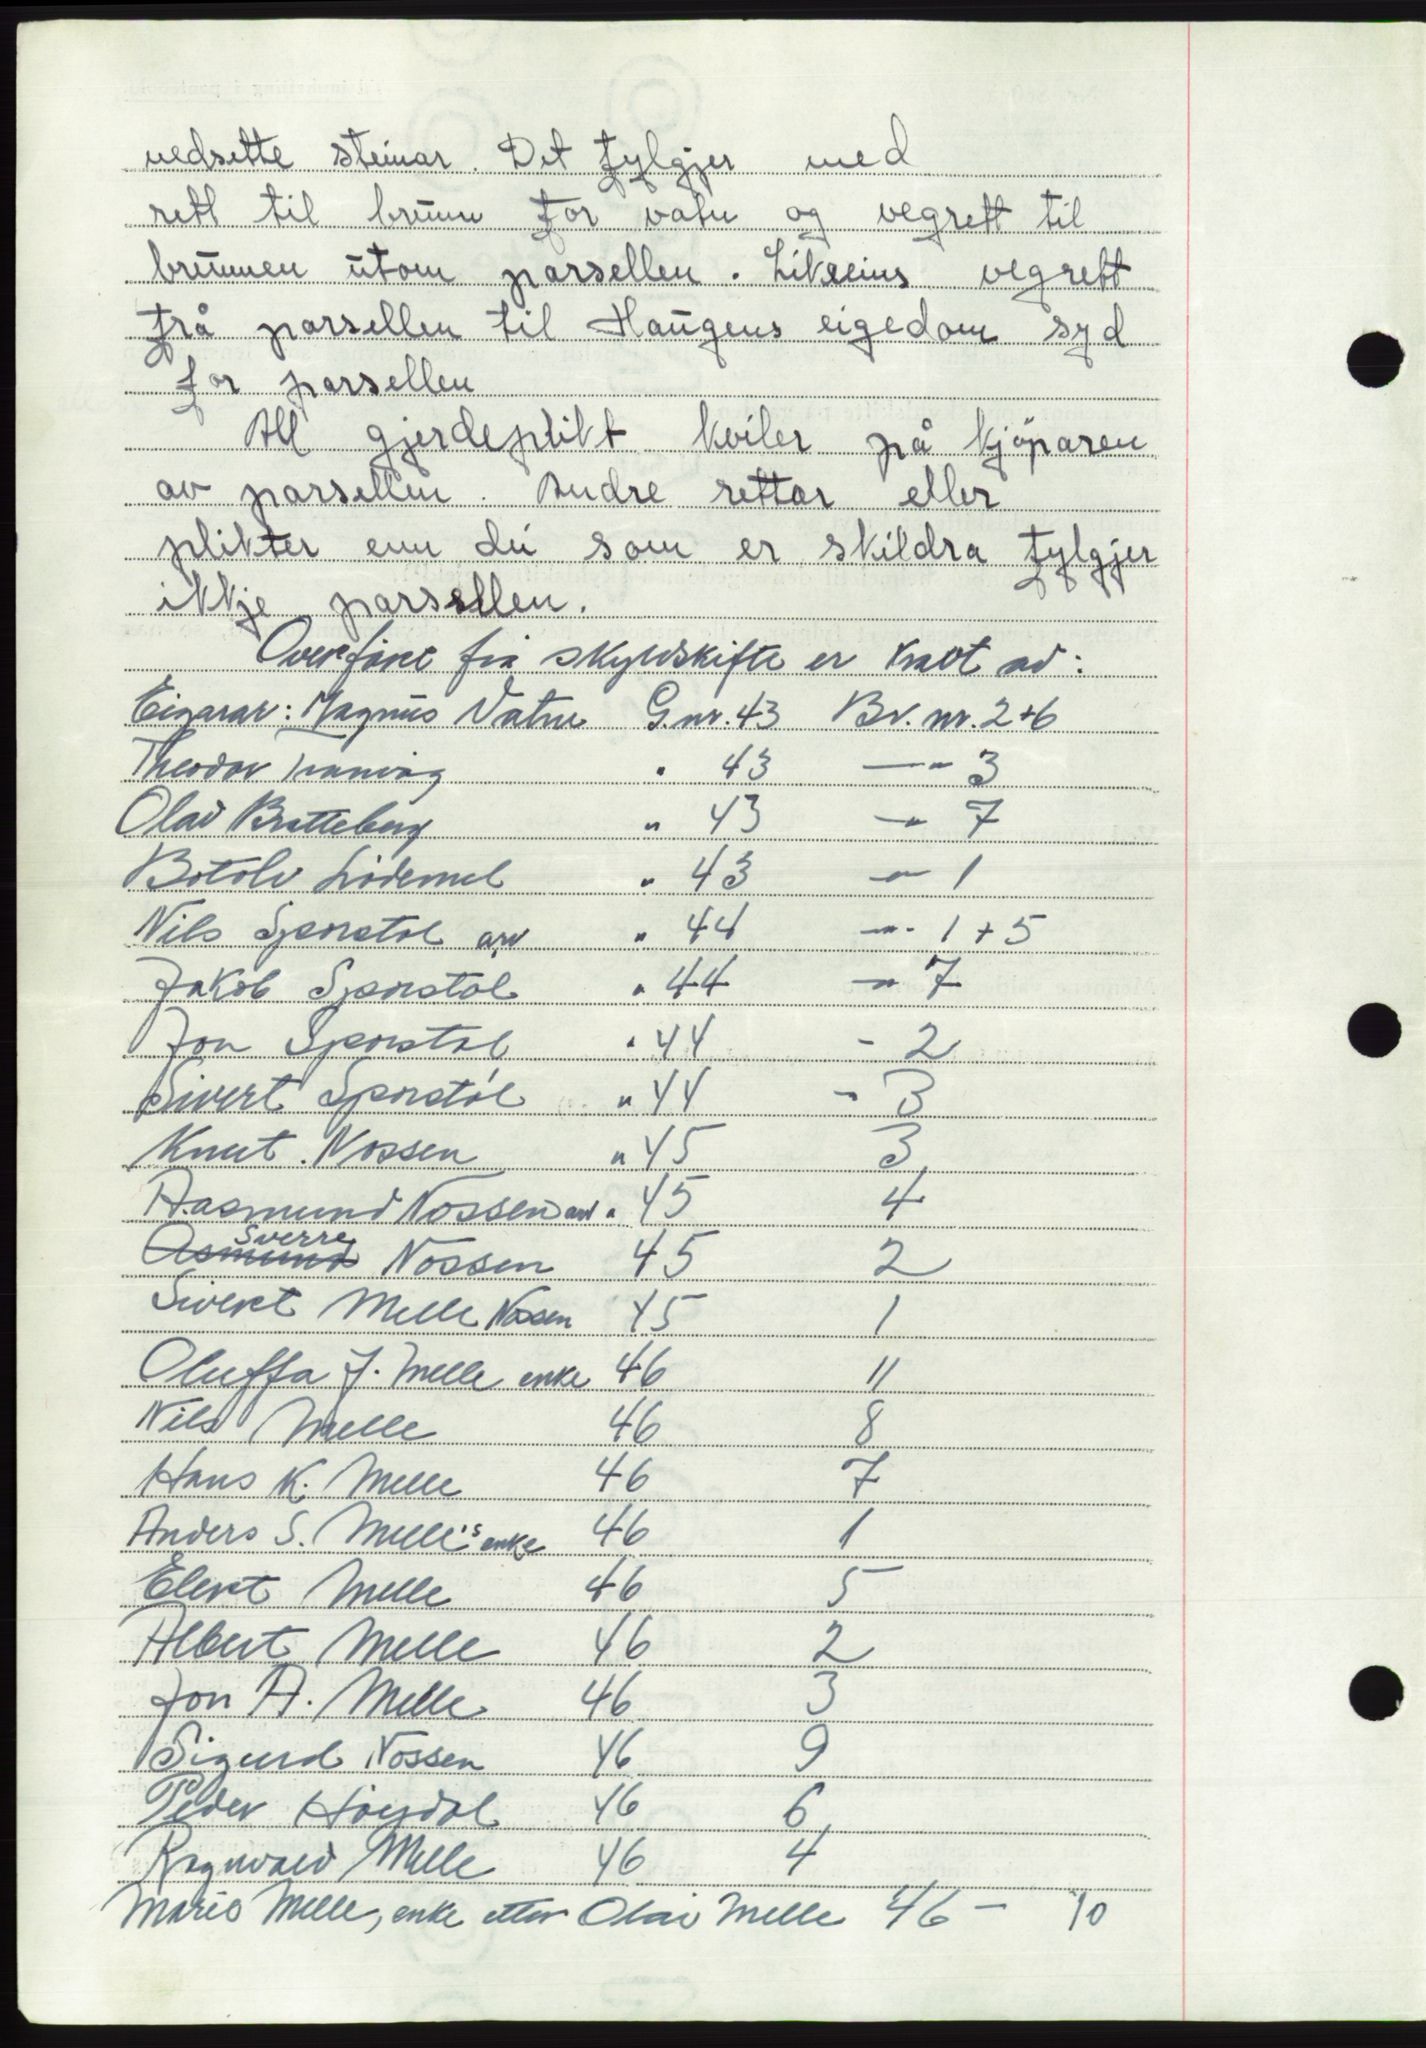 nedsette steinar. Det fylgjer med
rett til brunn for vatn og vegrett til
brunnen utom parsellen. Likeeins vegrett
frå parsellen til Haugens eigedom syd
for parsellen
All gjerdeplikt kviler på kjöparen
av parsellen. Andre rettar eller
plikter enn dei som er skildra fylgjer
ikkje parsellen.
Overføre frå skyldskifte er kravt av:
Eigarar: Magnus Vatne G. nr. 43 Br. nr. 2+6
Theodor " 43 —"— 3
Olav Bratteberg " 43 —"— 7
Botolv Lödemel " 43 —"— 1
Nils Sporstøl arv " 44 —"— 1 + 5
Jakob Sporstøl " 44 —"— 7
Jon Sporstøl " 44 - 2
Sivert Sporstøl " 44 - 3
Knut Nossen " 45 3
Rasmund Nossen arv " 45 4
Asmund Sverre Nossen 45 2
Sivert Melle Nossen 45 1
Oluffa J. Melle enke 46 11
Nils Melle 46 8
Hans K. Melle 46 7
Anders S. Melle's enke 46 1
Elert Melle 46 5
Albert Melle 46 2
Jon A. Melle 46 3
Sigurd Nossen 46 9
Peder Høydal 46 6
Ragnvald Melle 46 4
Marie Melle, enke etter Olai Melle 46 — 10